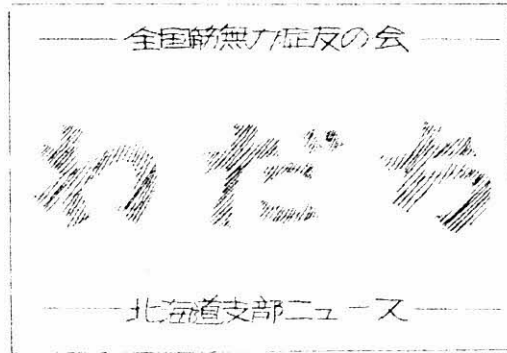 全国筋無力症友の会
わだち
北海道支部ニュース